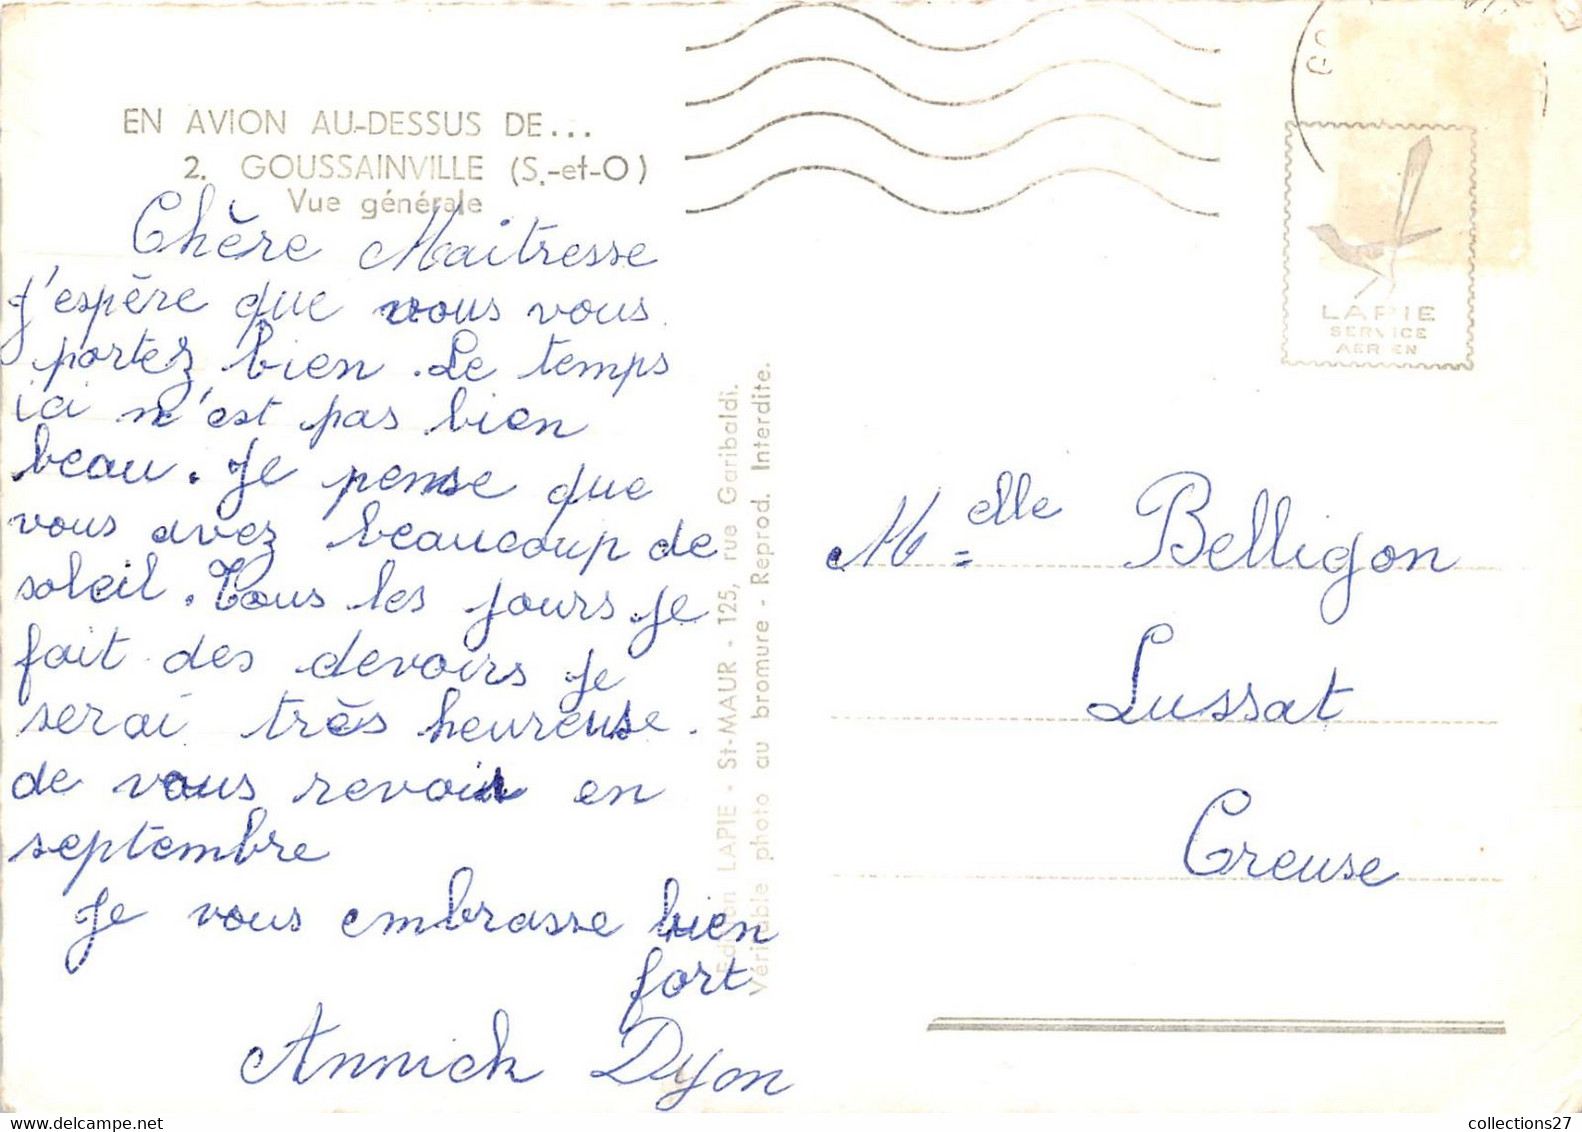 EN AVION AU-DESSUS DE...
2. GOUSSAINVILLE (S.-et-O)
Vue générale
Chère Maitresse
J'espère que vous vous
portez bien. Le temps
ici n'est pas bien
beau. Je pense que
vous avez beaucoup de
soleil. Tous les jours je
fait des devoirs je
serai très heureuse.
de vous revoir en
septembre
Je vous embrasse bien
fort
Annick Dyon
Edition LAPIE - St-MAUR - 125, rue Garibaldi.
Véritable photo au bromure - Reprod. Interdite.
LAPIE
SERVICE
AERIEN
Melle Belligon
Lussat
Creuse
collections27